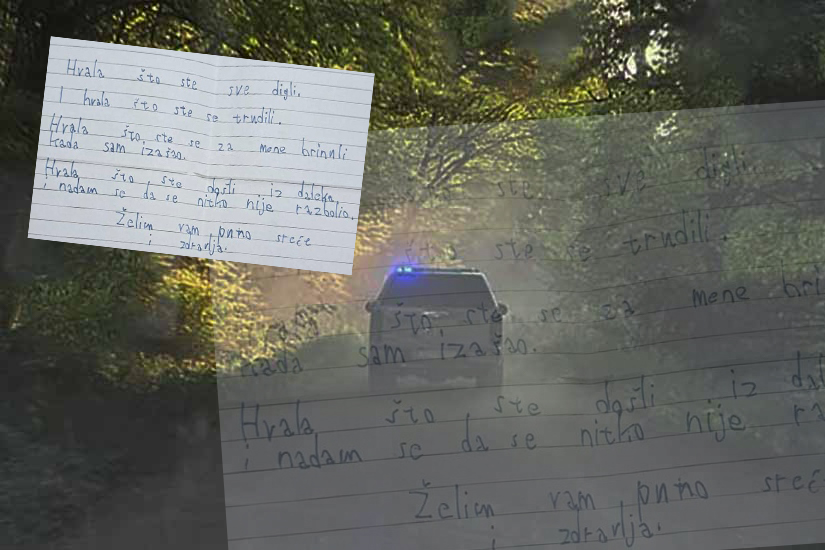 Hvala što ste sve digli.
I hvala što ste se trudili.
Hvala što ste se za mene brinnli
kada sam izašao.
Hvala što ste došli iz daleka
i nadam se da se nitko nije razbolio.
Želim vam pnno sreće
i zdravlja.
ste sve digli.
što ste se trudili.
što, ste se za mene bri
kada sam izašao.
Hvala što ste došli iz dal
i nadam se da se nitko nije ra
Želim vam pnno sreć
i zdravlja.